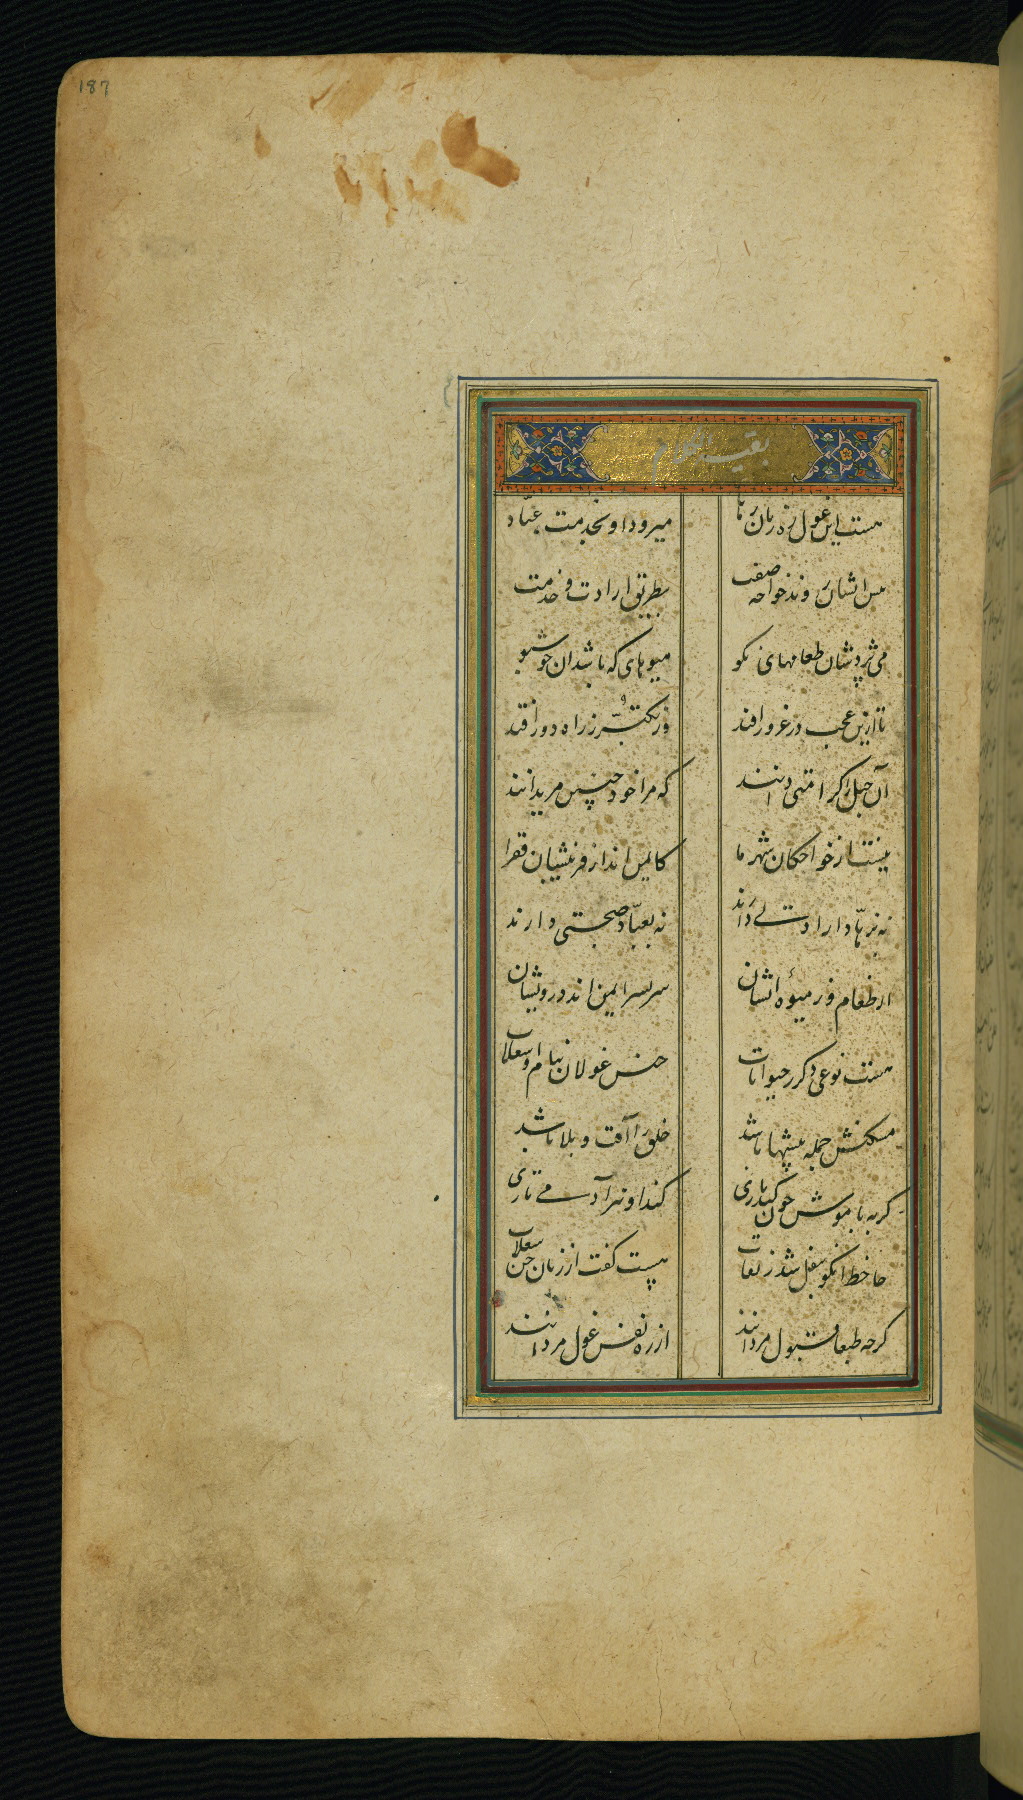 187
بقیة الکلام
هست این غول رهزنان رها میرود او بخدمت عبّاد
پس ایشان روند خواجه صفت بطریق ارادت و خدمت
می پزدشان طعامهای نکو میوهای که باشد آن خوشبو
تا ازین عجب در غرور افتد وز تکبّر ز راه دور افتد
آن حیل را کرامتی دانند که مرا خود چنین مریدانند
نیستند از خواجکان شهر ما کایمن اند از فریبشان فقرا
نه بزهّاد ارادتی دارند نه بعبّاد صحبتی دارند
از طعام و ز میوۀ ایشان سربسر ایمن اند درویشان
هست نوعی دکر ز حیوانات جنس غولان بنام او سعلات
مسکنش جمله بیشها باشد خلق را آفت و بلا باشد
کربه با موش چون کند بازی کند او نیز آدمی تازی
حافظ انکو بنقل شد ز ثقات هست کفت از زنان جن سعلات
کرچه طبعا قبول مردانند از ره نفس غول مردانند